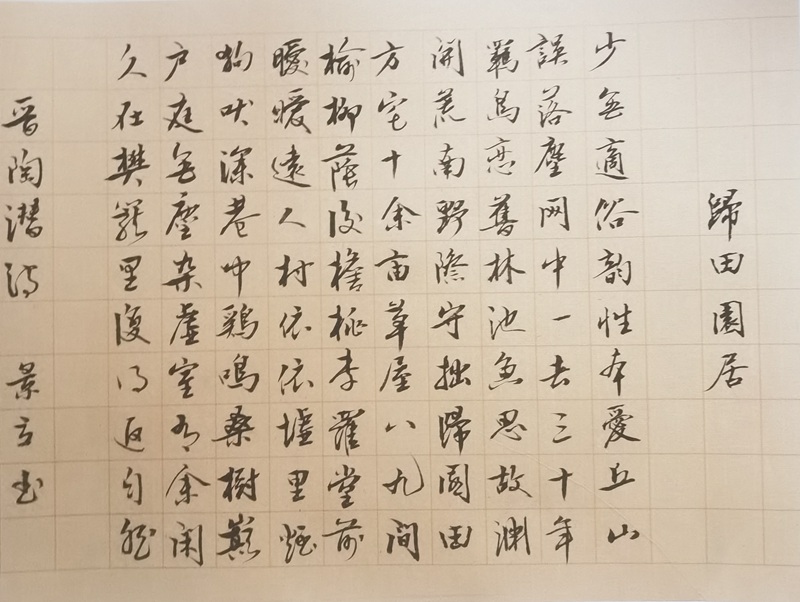 歸田園居
少無適俗韵性本愛丘山
誤落塵网中一去三十年
羈鳥恋舊林池魚思故渊
開荒南野際守拙歸園田
方宅十余亩草屋八九間
榆柳蔭後檐桃李羅堂前
曖曖遠人村依依墟里煙
狗吠深巷中鷄鳴桑樹巔
户庭無塵杂虛室有余閑
久在樊籠里復得返自然
晋陶潜詩 景书